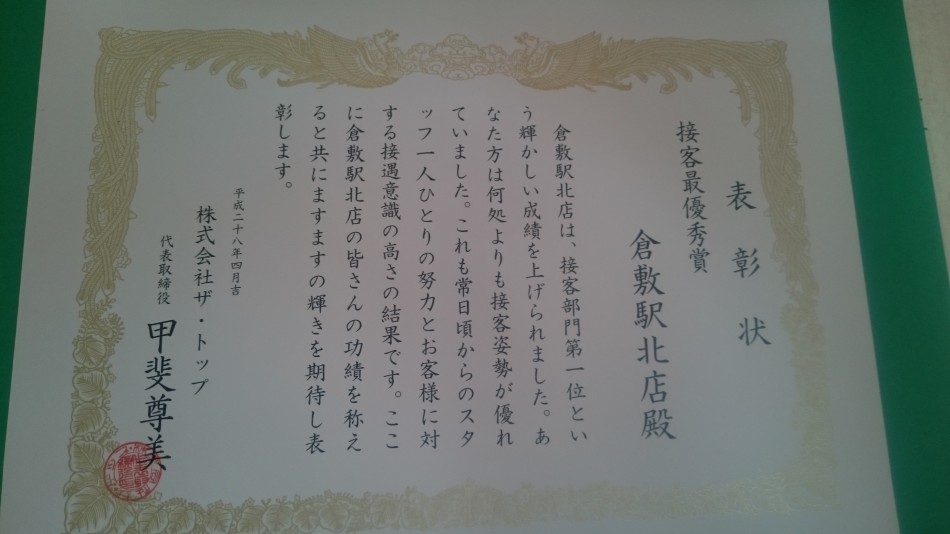 表彰状
接客最優秀賞
倉敷駅北店殿
倉敷駅北店は、接客部門第一位とい
う輝かしい成績を上げられました。あ
なた方は何処よりも接客姿勢が優れ
ていました。これも常日頃からのスタ
ッフ一人ひとりの努力とお客様に対
する接遇意識の高さの結果です。ここ
に倉敷駅北店の皆さんの功績を称え
ると共にますますの輝きを期待し表
彰します。
平成二十八年四月吉
株式会社ザ・トップ
代表取締役
甲斐尊美